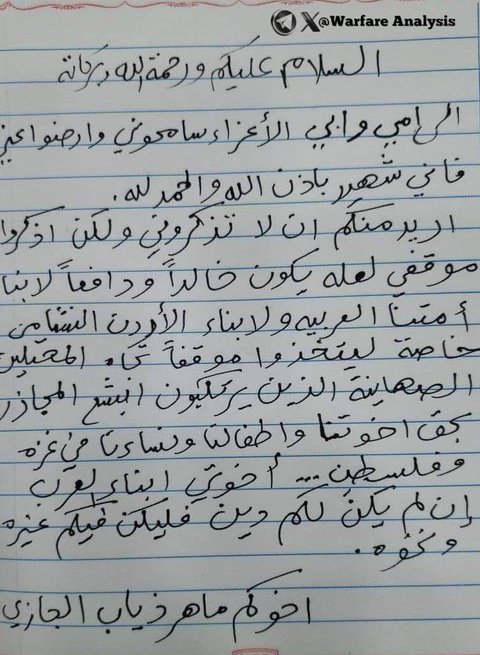 @Warfare Analysis
السلام عليكم ورحمة الله وبركاته
الى امي وابي الأعزاء سامحوني وارضوا عني
فاني شهيد باذن الله والحمد لله.
اريد منكم ان لا تذكروني ولكن اذكروا
موقفي لعله يكون خالداً ودافعاً لابنا
أمتنا العربيه ولابناء الأردن النشامى
خاصة ليتخذوا موقفاً تجاه المحتلين
الصهاينة الذين يرتكبون ابشع المجازر
بحق اخوتنا واطفالنا ونساءنا في غزه
وفلسطين... أخوتي ابناء العرب
إن لم يكن لكم دين فليكن فيكم غيره
ونخوه.
اخوكم ماهر ذياب الجازي